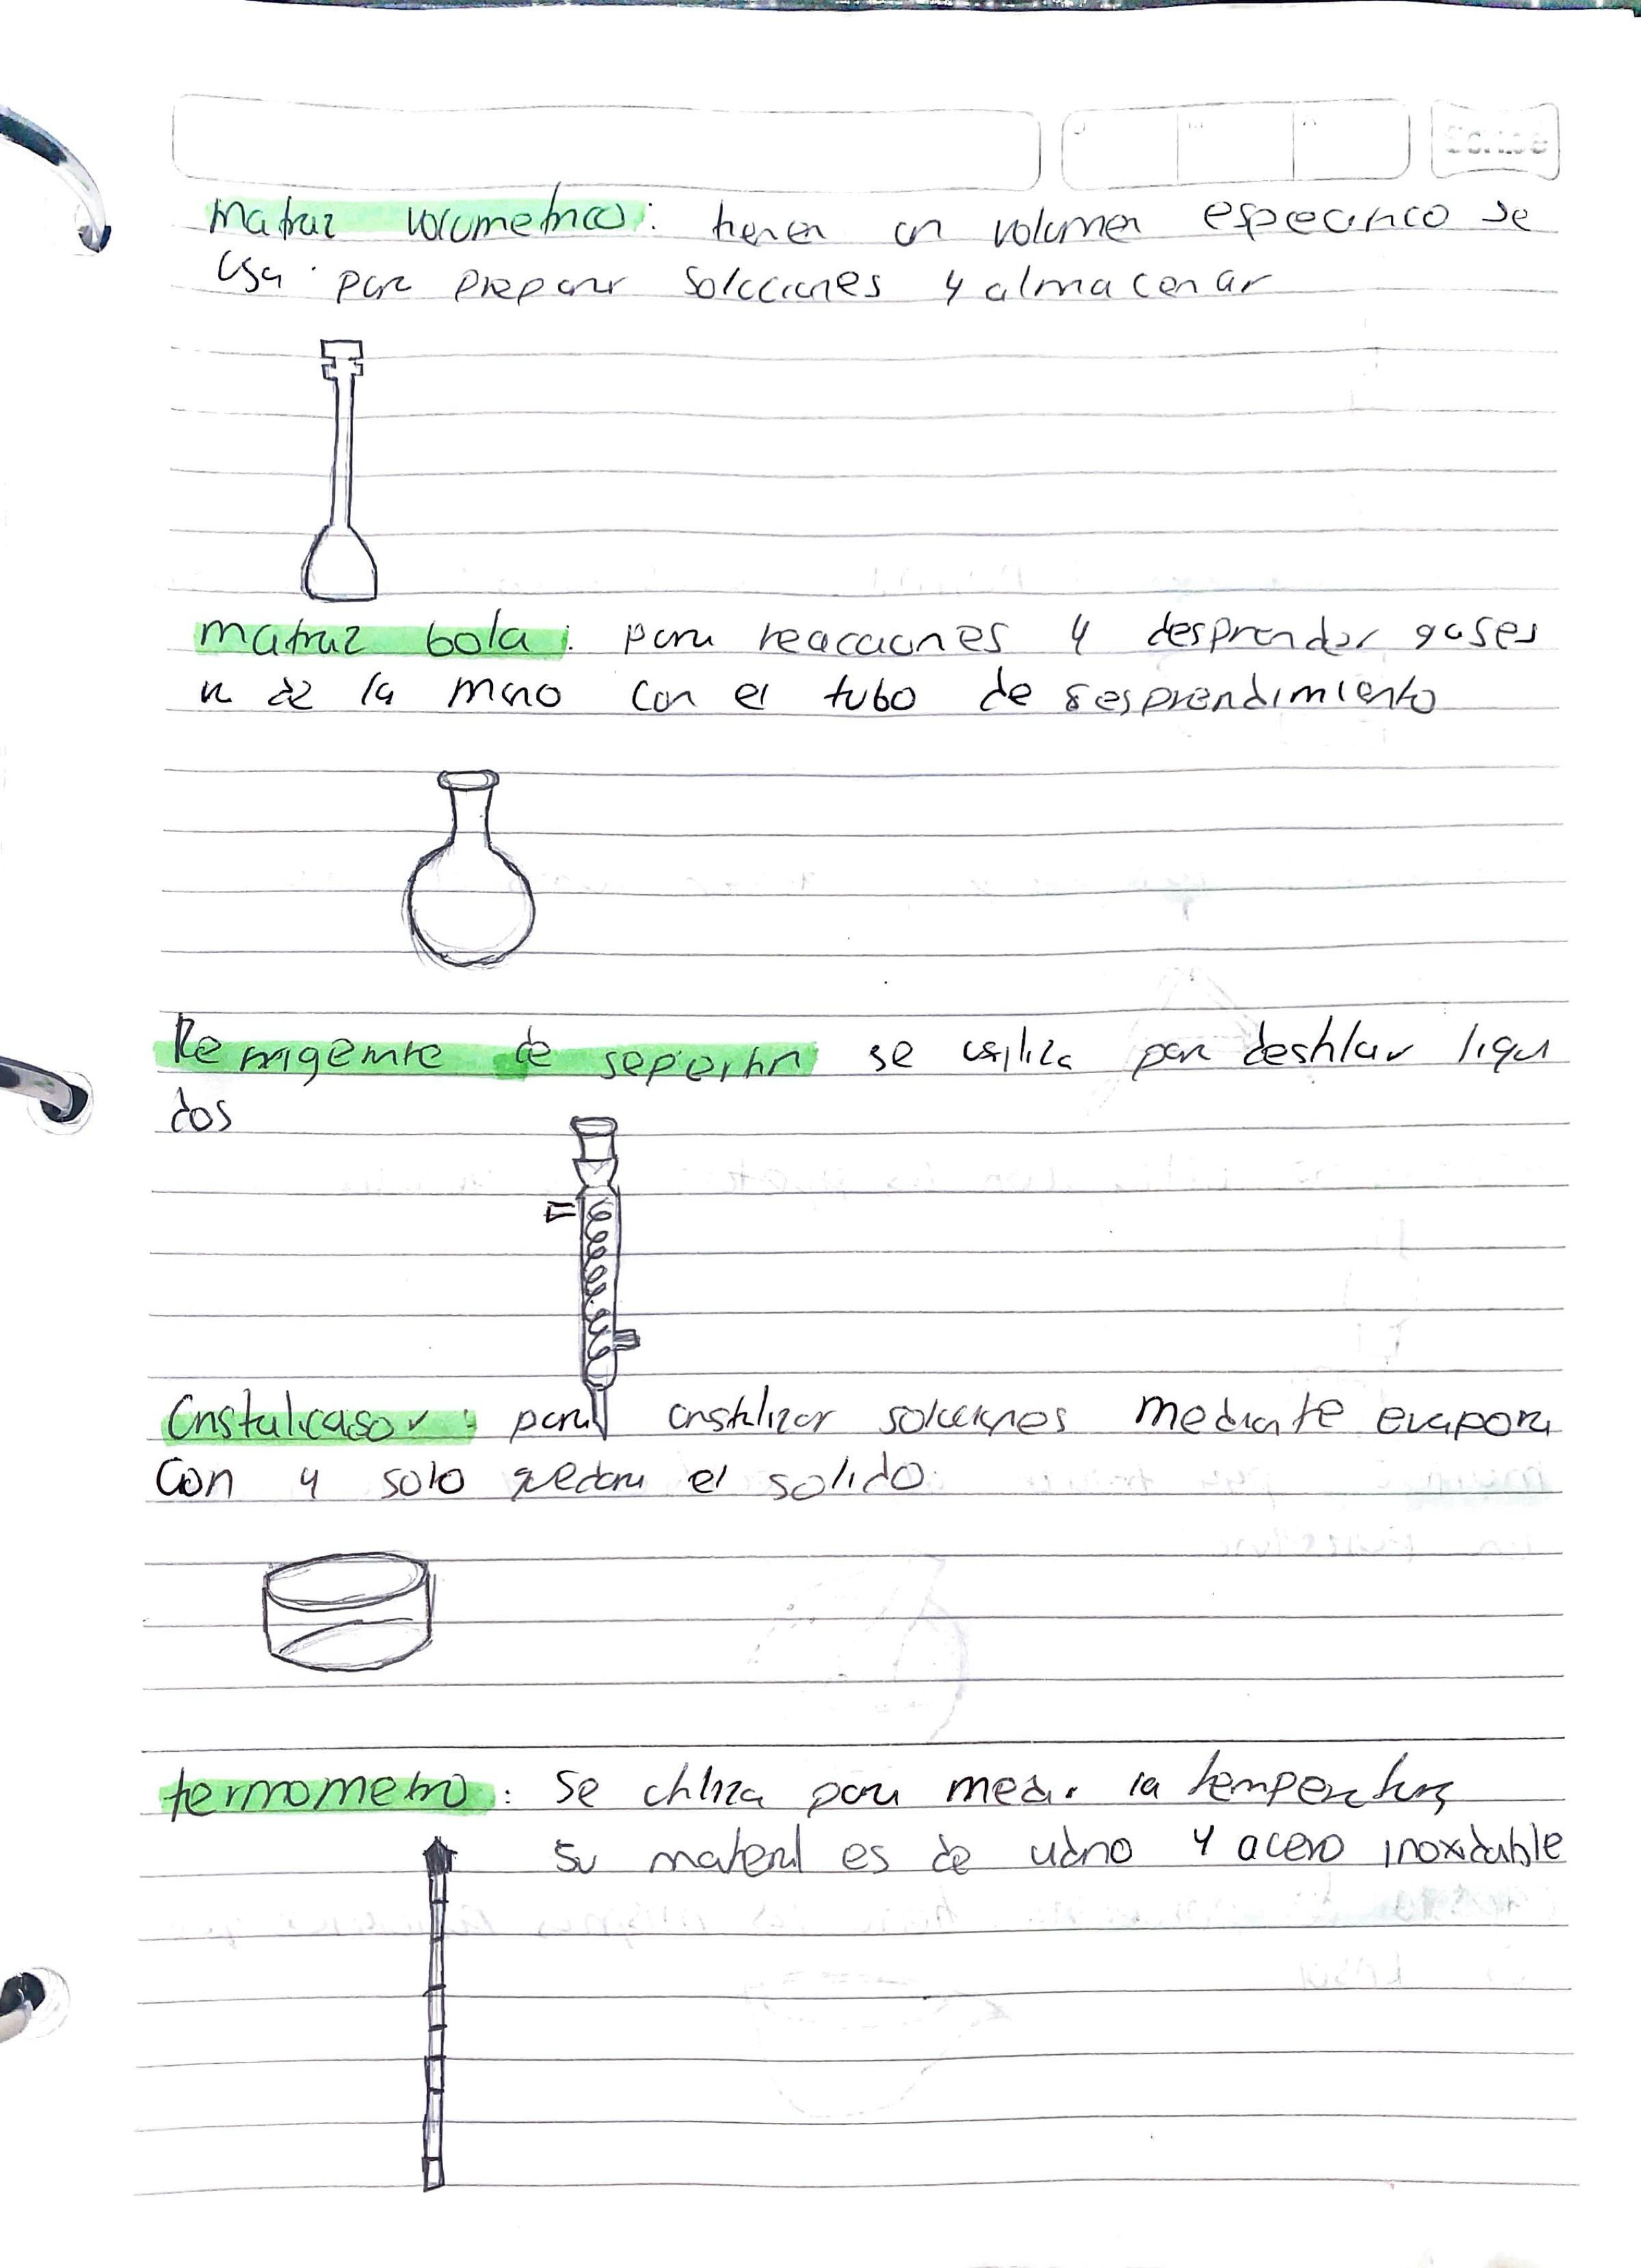 matraz volumetrico: tienen un volumen especifico se
usa para preparar soluciones y almacenar
matraz bola: para reacciones y desprender gases
va de la mano con el tubo de desprendimiento
Refrigerante de serpertin se utiliza para destilar liqui
dos
Cristalizasor: para cristalizar soluciones mediante evapora
cion y solo quedara el solido
termometro: Se utiliza para medir la temperatura
su material es de vidrio y acero inoxidable